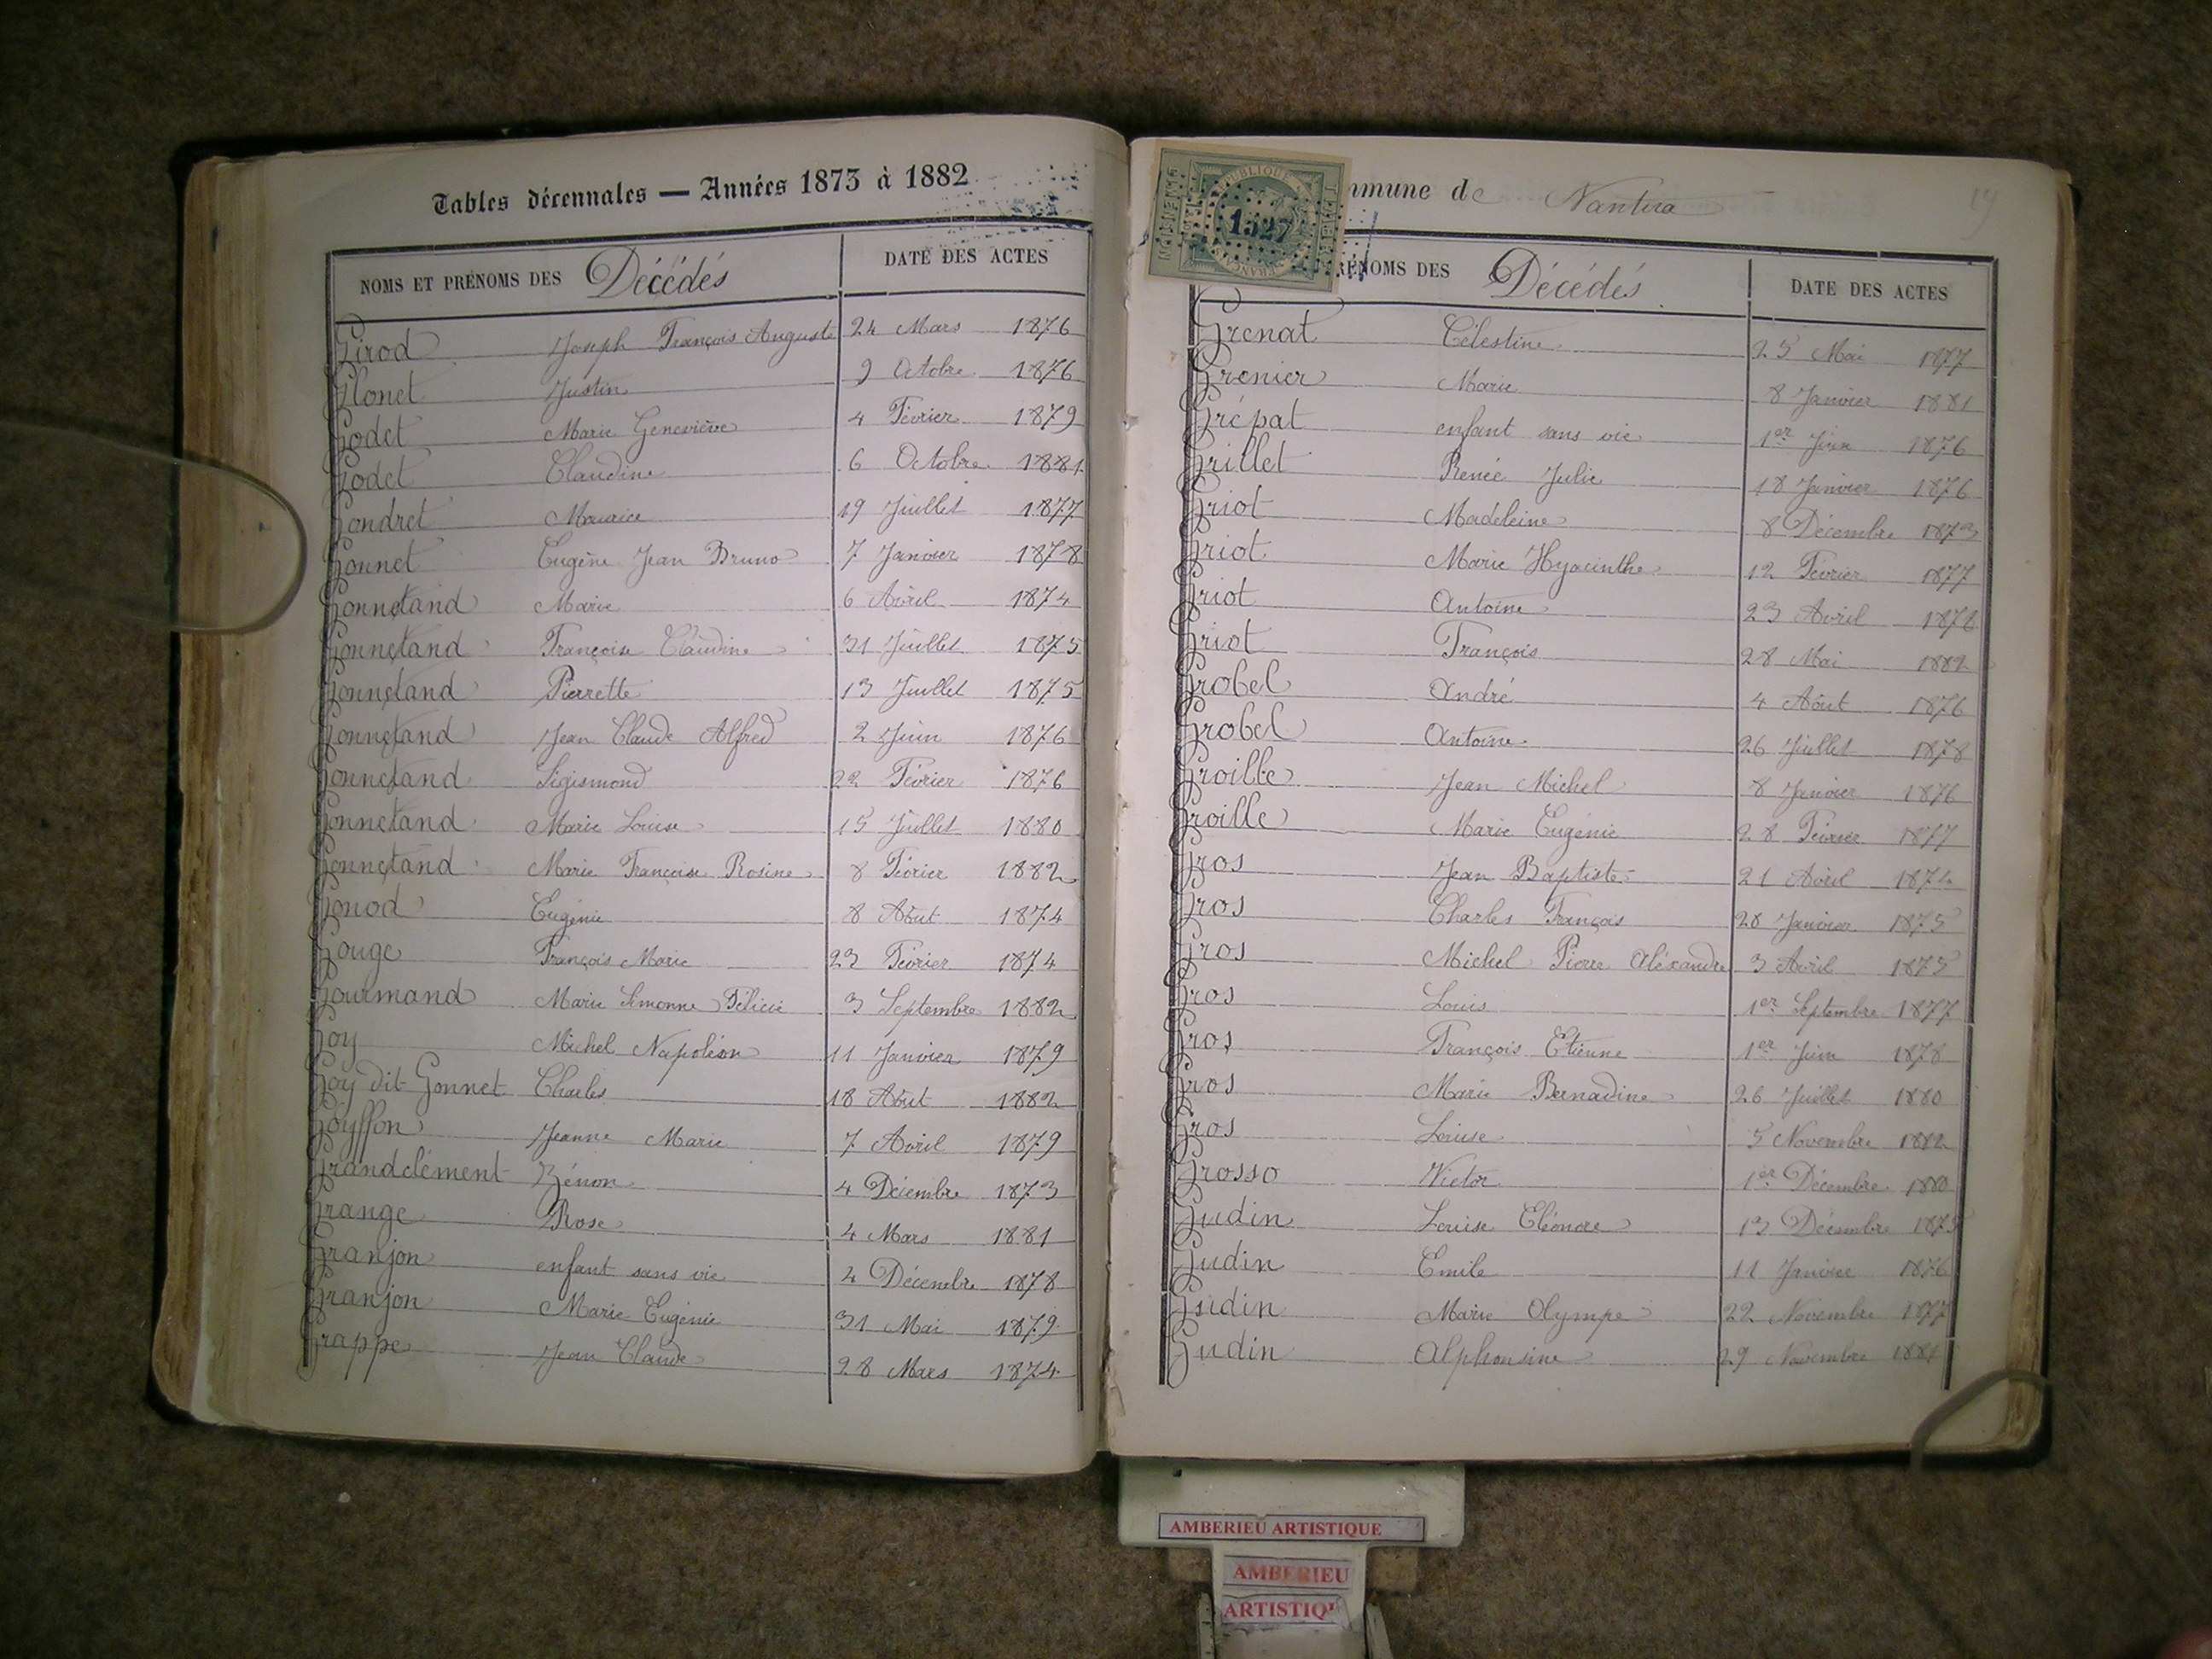 Tables décennales — Années 1873 à 1882
NOMS ET PRÉNOMS DES Décédés DATE DES ACTES
Girod Joseph François Auguste 24 Mars 1876
Glonet Justin 9 Octobre 1876
Godet Marie Geneviève 4 Février 1879
Godet Claudine 6 Octobre 1881
Gondret Maurice 19 Juillet 1877
Gonnet Eugène Jean Bruno 7 Janvier 1878
Gonnetand Marie 6 Avril 1874
Gonnetand Françoise Claudine 31 Juillet 1875
Gonnetand Pierrette 13 Juillet 1875
Gonnetand Jean Claude Alfred 2 Juin 1876
Gonnetand Sigismond 22 Février 1876
Gonnetand Marie Louise 15 Juillet 1880
Gonnetand Marie Françoise Rosine 8 Février 1882
Gonod Eugénie 8 Août 1874
Gouge François Marie 23 Février 1874
Gourmand Marie Simonne Félicie 3 Septembre 1882
Goy Michel Napoléon 11 Janvier 1879
Goy dit Gonnet Charles 18 Août 1882
Goyffon Jeanne Marie 7 Avril 1879
Grandclément Zénon 4 Décembre 1873
Grange Rose 4 Mars 1881
Granjon enfant sans vie 4 Décembre 1878
Granjon Marie Eugénie 31 Mai 1879
Grappe Jean Claude 28 Mars 1874
mmune de Nantua
RÉPUBLIQUE
1527
RÉNOMS DES Décédés DATE DES ACTES
Grenat Célestine 25 Mai 1877
Grenier Marie 8 Janvier 1881
Grépat enfant sans vie 1er Juin 1876
Grillet Renée Julie 18 Janvier 1876
Griot Madeleine 8 Décembre 1873
Griot Marie Hyacinthe 12 Février 1877
Griot Antoine 23 Avril 1878
Griot François 28 Mai 1882
Grobel André 4 Août 1876
Grobel Antoine 26 Juillet 1878
Groille Jean Michel 8 Janvier 1876
Groille Marie Eugénie 28 Février 1877
Gros Jean Baptiste 21 Avril 1874
Gros Charles François 28 Janvier 1875
Gros Michel Pierre Aléxandre 3 Avril 1875
Gros Louis 1er Septembre 1877
Gros François Etienne 1er Juin 1878
Gros Marie Bernadine 26 Juillet 1880
Gros Louise 5 Novembre 1882
Grosso Victor 1er Décembre 1880
Gudin Louise Eléonore 13 Décembre 1875
Gudin Emile 11 Janvier 1876
Gudin Marie Olympe 22 Novembre 1877
Gudin Alphonsine 29 Novembre 1881
AMBERIEU ARTISTIQUE
AMBERIEU
ARTISTIQU